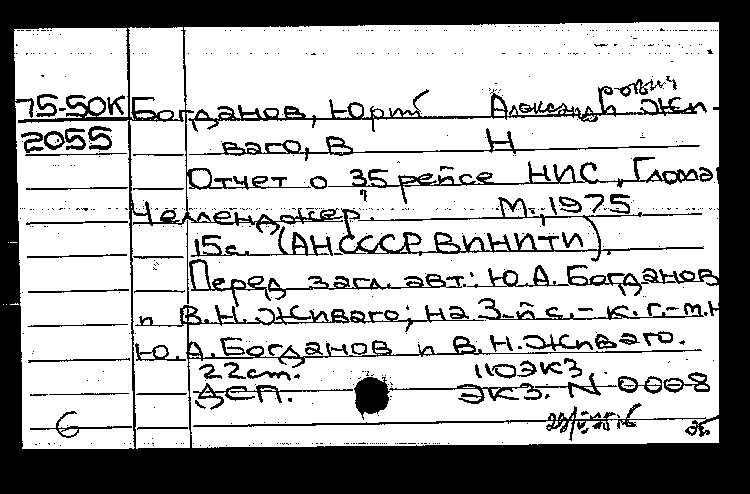 рович
75-50К Богданов, Юрий Александ Жи-
2055 ваго, В Н
Отчет о 35 рейсе НИС "Глома
Челленджер". М., 1975.
15с. (АН СССР, ВИНИТИ).
Перед загл. авт.: Ю.А. Богданов
и В.Н. Живаго; на 3-й с. - к. г.-м.н
Ю.А. Богданов и В.Н. Живаго.
22 см. 110 экз.
ДСП. Экз. N 0008
6